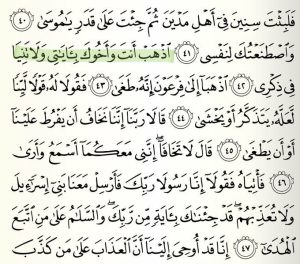 فَلَبِثْتَ سِنِينَ فِىٓ أَهْلِ مَدْيَنَ ثُمَّ جِئْتَ عَلَىٰ قَدَرٍ يَٰمُوسَىٰ ٤٠
وَٱصْطَنَعْتُكَ لِنَفْسِى ٤١ ٱذْهَبْ أَنتَ وَأَخُوكَ بِـَٔايَٰتِى وَلَا تَنِيَا
فِى ذِكْرِى ٤٢ ٱذْهَبَآ إِلَىٰ فِرْعَوْنَ إِنَّهُۥ طَغَىٰ ٤٣ فَقُولَا لَهُۥ قَوْلًا لَّيِّنًا
لَّعَلَّهُۥ يَتَذَكَّرُ أَوْ يَخْشَىٰ ٤٤ قَالَا رَبَّنَآ إِنَّنَا نَخَافُ أَن يَفْرُطَ عَلَيْنَآ
أَوْ أَن يَطْغَىٰ ٤٥ قَالَ لَا تَخَافَآ إِنَّنِى مَعَكُمَآ أَسْمَعُ وَأَرَىٰ
٤٦ فَأْتِيَاهُ فَقُولَآ إِنَّا رَسُولَا رَبِّكَ فَأَرْسِلْ مَعَنَا بَنِىٓ إِسْرَٰٓءِيلَ
وَلَا تُعَذِّبْهُمْ قَدْ جِئْنَٰكَ بِـَٔايَةٍ مِّن رَّبِّكَ وَٱلسَّلَٰمُ عَلَىٰ مَنِ ٱتَّبَعَ
ٱلْهُدَىٰٓ ٤٧ إِنَّا قَدْ أُوحِىَ إِلَيْنَآ أَنَّ ٱلْعَذَابَ عَلَىٰ مَن كَذَّبَ